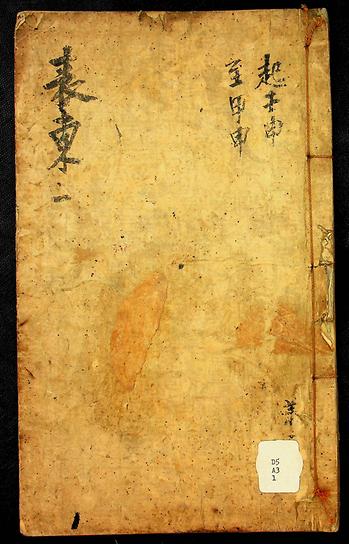 起壬申
至甲申
表東二
D5
A3
1